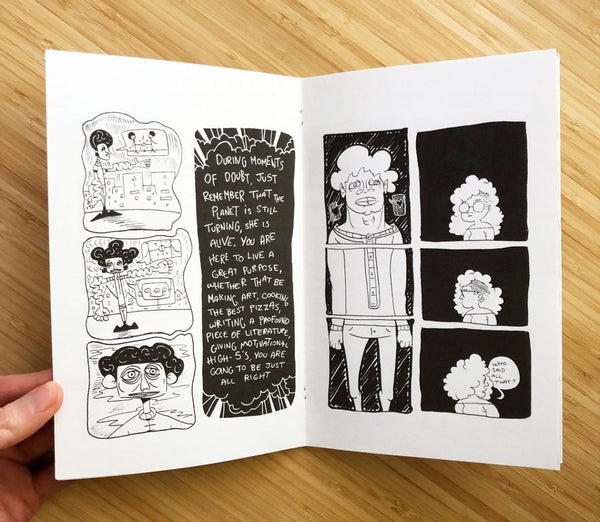 DURING MOMENTS
OF DOUBT, JUST
REMEMBER THAT THE
PLANET IS STILL
TURNING, SHE IS
ALIVE. YOU ARE
HERE TO LIVE A
GREAT PURPOSE,
WHETHER THAT BE
MAKING ART, COOKING
THE BEST PIZZAS,
WRITING A PROFOUND
PIECE OF LITERATURE,
GIVING MOTIVATIONAL
HIGH-5'S, YOU ARE
GOING TO BE JUST
ALL RIGHT
WHO
SAID
ALL
THAT?